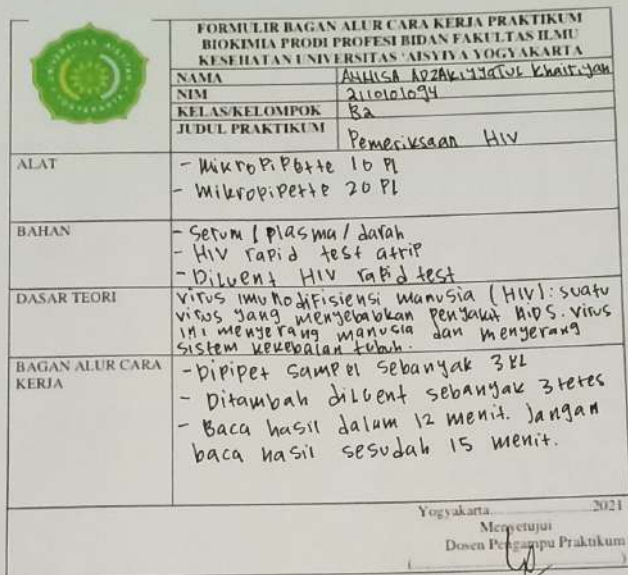 UNIVERSITAS 'AISYIYAH
YOGYAKARTA
FORMULIR BAGAN ALUR CARA KERJA PRAKTIKUM
BIOKIMIA PRODI PROFESI BIDAN FAKULTAS ILMU
KESEHATAN UNIVERSITAS 'AISYIYA YOGYAKARTA
NAMA ANNISA ADZAKIYYATUL Khairiyah
NIM 2110101094
KELAS/KELOMPOK B2
JUDUL PRAKTIKUM Pemeriksaan HIV
ALAT
- MikroPiPette 10 Pl
- Mikropipette 20 Pl
BAHAN
- Serum / plasma / darah
- HIV rapid test atrip
- Diluent HIV rapid test
DASAR TEORI
Virus imunodifisiensi manusia (HIV): suatu
virus yang menyebabkan penyakit AIDS. virus
ini menyerang manusia dan menyerang
sistem kekebalan tubuh.
BAGAN ALUR CARA
KERJA
- Dipipet sampel sebanyak 3
- Ditambah diluent sebanyak 3 tetes
- Baca hasil dalam 12 menit. Jangan
baca hasil sesudah 15 menit.
Yogyakarta..............2021
Menyetujui
Dosen Pengampu Praktikum